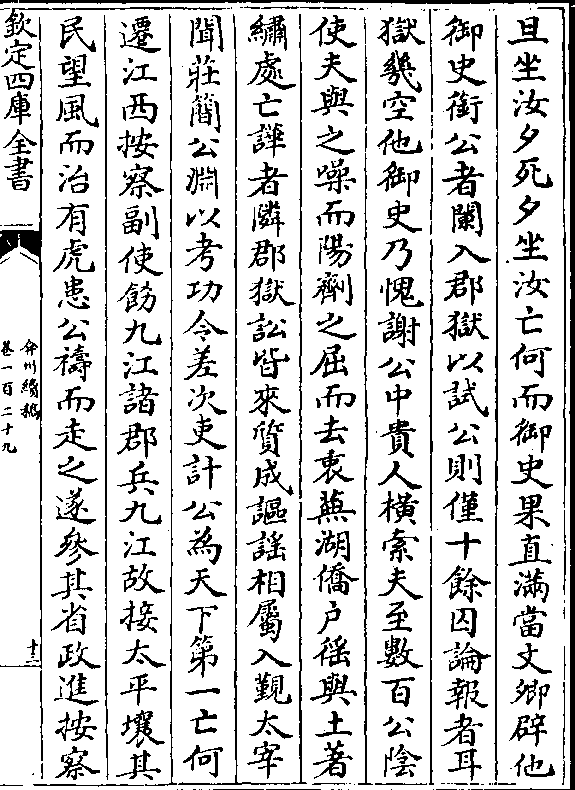 旦坐汝夕死夕坐汝亡何而御史果直滿當文卿辟他
御史銜公者闌入郡獄以試公則僅十餘囚論報者耳
獄幾空他御史乃愧謝公中貴人橫索夫至數百公陰
使夫與之噪而陽劑之屈而去衷蕪湖僑户徭與土著
繡處亡譁者隣郡獄訟皆來質成謳謡相屬入覲太宰
聞莊簡公淵以考功令差次吏計公為天下第一亡何
遷江西按察副使飭九江諸郡兵九江故接太平壤其
民望風而治有虎患公禱而走之遂參其省政進按察
欽定四庫全書
弇州續稿
卷一百二十九
十三